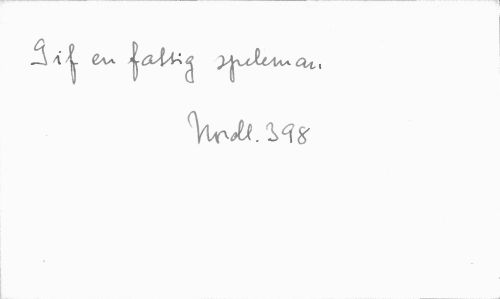 Gif en fattig speleman.
Nordl. 398